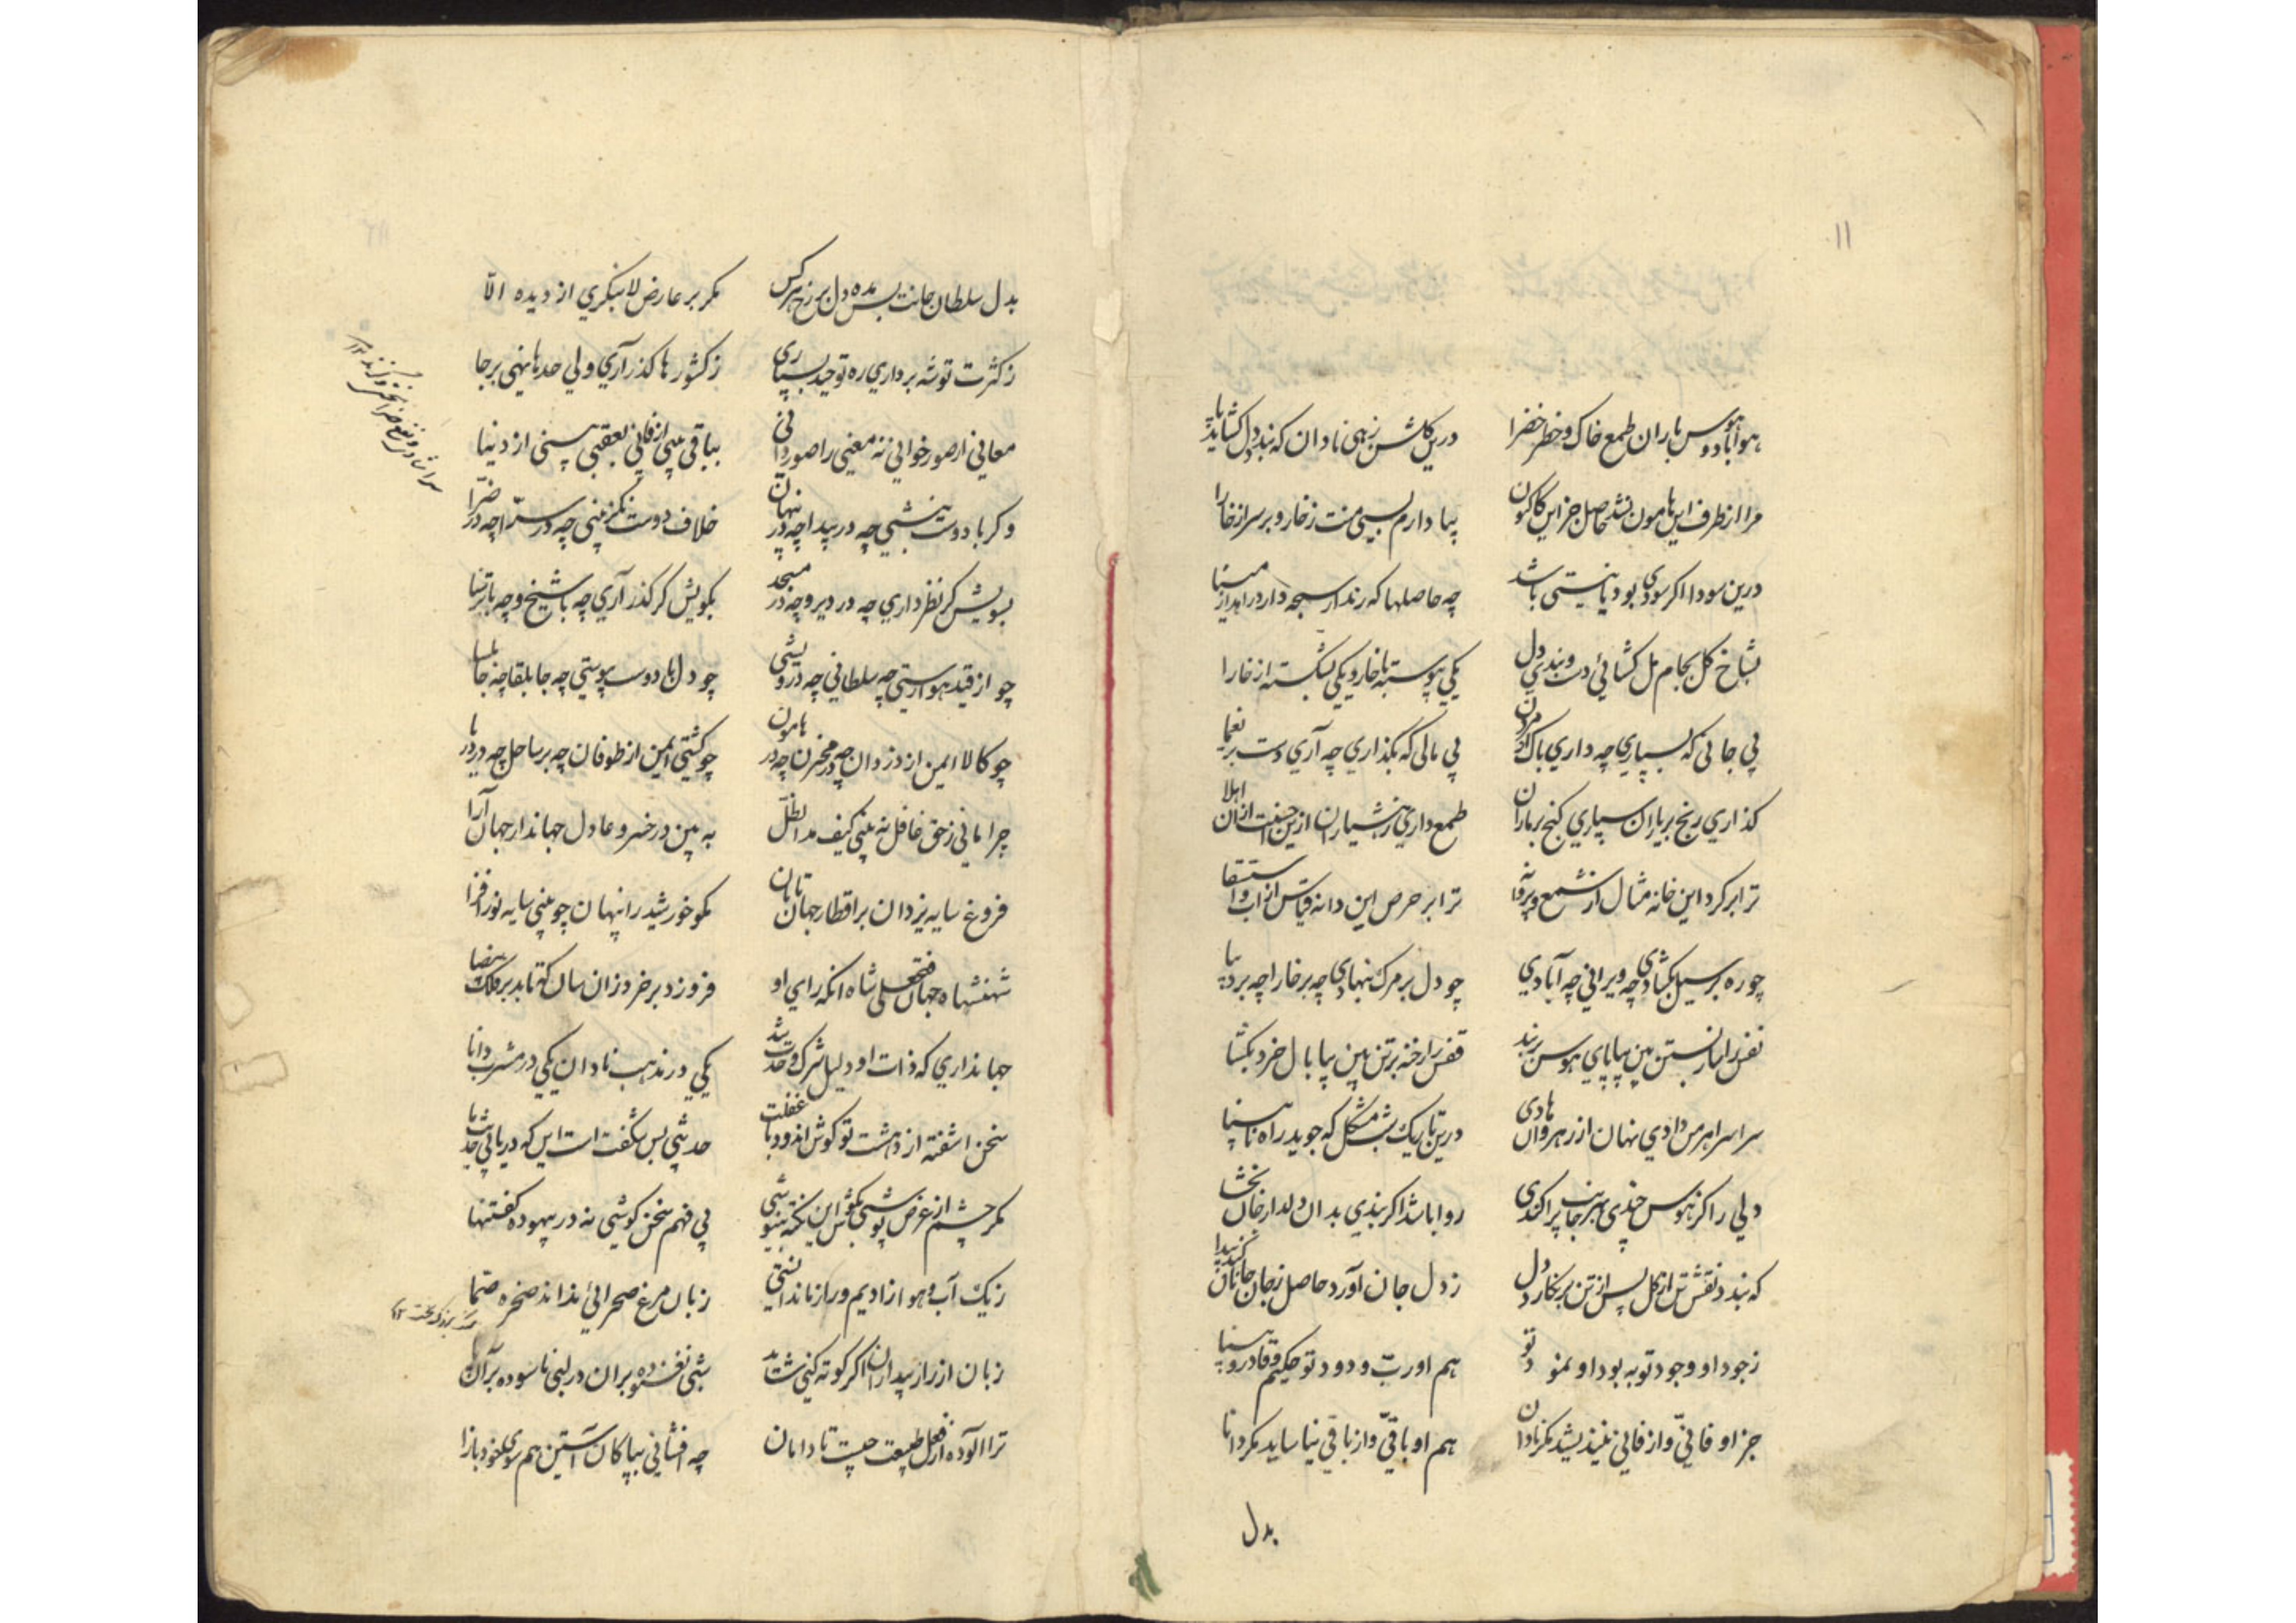 ۱۱
هوا باد و هوس باران طمع خاک و خطر خضرا درین گلشن زهی نادان که بندد دل گشاید پا
مرا از طرف این هامون نشد حاصل جز این کاکنون بپا دارم بسی منت ز خار و بر سر از خارا
درین سودا اگر سودی بود یا نیستی باشد چه حاصلها که رند از سبحه دارد زاهد از مینا
بشاخ گل بجام مل گشائی دست و بندی دل یکی پیوسته با خار و یکی بشکسته از خارا
پی جانی که بسپاری چه داری باک از مردن پی مالی که بگذاری چه آری دست بر یغما
گذاری رنج بر یاران سپاری گنج بر ماران طمع داری ز هشیاران ازین جنت از آن اهلا
ترا بر گرد این خانه مثال از شمع و پروانه ترا بر حرص این دانه قیاس از آب و استسقا
چو ره بر سیل بگشادی چه ویرانی چه آبادی چو دل بر مرگ بنهادی چه بر خارا چه بر دیبا
نفس را مار بستن بین بپا پای هوس بربند قفس را رخنه بر تن بین بیا بال خرد بگشا
سراسر اهرمن وادی نهان از رهروان هادی درین تاریک شب مشکل که جوید راه نابینا
دلی را کز هوس چندی بهر جانب پراکندی روا باشد اگر بندی بدان دلدار جان بخشا
که بندد نقش تن از گل پس از تن بر نگارد دل ز دل جان آورد حاصل ز جان جانان کند پیدا
ز جود او وجود تو به بود او نمود تو هم او رب ودود تو حکیم و قادر و بینا
جز او فانی و از فانی نیندیشد مگر نادان هم او باقی و از باقی نیاساید مگر دانا
بدل
بدل سلطان جانت بس مده دل بر رخ هر کس مگر بر عارض لا بنگری از دیده الا
ز کثرت توشه برداری ره توحید بسپاری ز کشورها گذر آری ولی حدها نهی بر جا
معانی از صور خوانی نه معنی را صور دانی بباقی بینی از فانی بعقبی بینی از دنیا
وگر با دوست بنشینی چه در پیدا چه در پنهان خلاف دوست نگزینی چه در سرا چه در ضرا
بسویش گر نظر داری چه در دیر و چه در مسجد بکویش گر گذر آری چه با شیخ و چه با ترسا
چو از قید هوا رستی چه سلطانی چه درویشی چو دل با دوست پیوستی چه جابلقا چه جابلسا
چو کالا ایمن از دزدان چه در مخزن چه در هامون چو کشتی ایمن از طوفان چه بر ساحل چه در دریا
چرا مانی ز حق غافل نه بینی کیف مد الظل به بین در خسرو عادل جهاندار جهان آرا
فروغ سایه یزدان بر اقطار جهان تابان مگو خورشید را پنهان چو بینی سایه نور افزا
شهنشاه جهان فتحعلی شاه آنکه رای او فروزد بر خرد زان سان که تابد بر فلک بیضا
جهانداری که ذات او دلیل شرک و وحدت شد یکی در مذهب نادان یکی در مشرب دانا
سخن اشفته از دهشت تو گوش اندوده با غفلت حدیثی بس شگفت است این که دریابی حدیث ما
مگر چشم از غرض پوشی بگوش این نکته بنیوشی پی فهم سخن کوشی نه در بیهوده گفتنها
ز یک آب و هوا زادیم و راز ما ندانستی زبان مرغ صحرائی نداند صخره صما
زبان از راز بیداران اگر کوته کنی شاید شبی نغنوده بر آن در لبی ناسوده بر آن پا
ترا آلوده از فعل طبیعت جیب تا دامان چه افشانی بپاکان آستین هم سوی خود بازآ